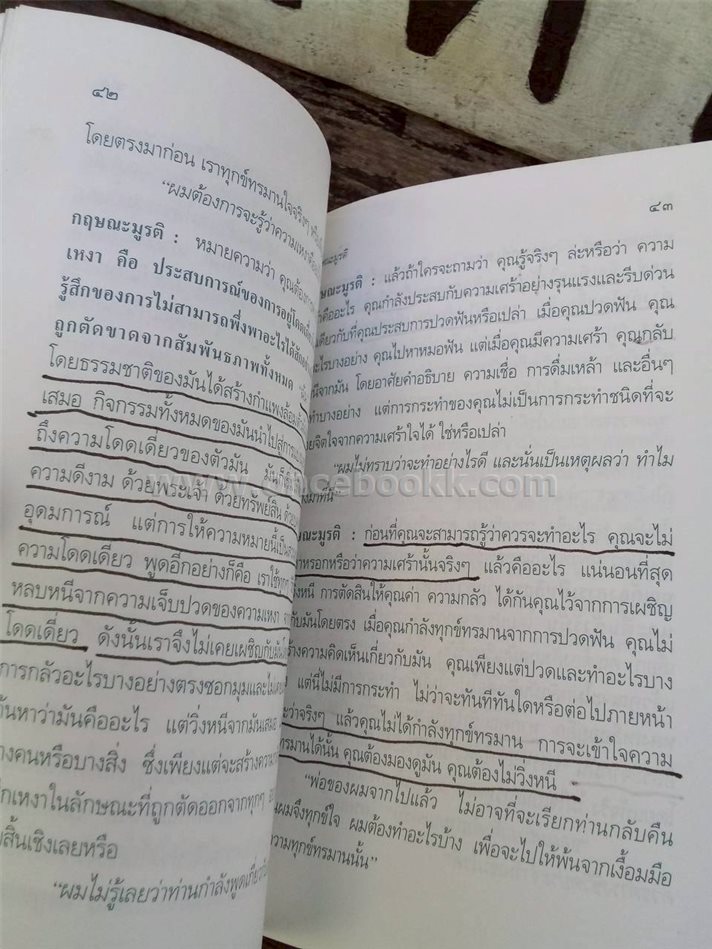 ๔๒
โดยตรงมาก่อน เราทุกข์ทรมานใจจริงๆ
“ผมต้องการจะรู้ว่าความเหงา
กฤษณะมูรติ : หมายความว่า คุณต้อง
เหงา คือ ประสบการณ์ของการอยู่โดดเดี่ยว
รู้สึกของการไม่สามารถพึ่งพาอะไรได้
ถูกตัดขาดจากสัมพันธภาพทั้งหมด
โดยธรรมชาติของมันได้สร้างกำแพงล้อม
เสมอ กิจกรรมทั้งหมดของมันนำไปสู่การ
ถึงความโดดเดี่ยวของตัวมัน มัน
ความดีงาม ด้วยพระเจ้า ด้วยทรัพย์สิน ด้วย
อุดมการณ์ แต่การให้ความหมายนี้เป็น
ความโดดเดี่ยว พูดอีกอย่างก็คือ เราใช้ทุก
หลบหนีจากความเจ็บปวดของความเหงา
โดดเดี่ยว ดังนั้นเราจึงไม่เคยเผชิญกับมัน
การกลัวอะไรบางอย่างตรงซอกมุมและไม่เคย
ค้นหาว่ามันคืออะไร แต่วิ่งหนีจากมันเสมอ
างคนหรือบางสิ่ง ซึ่งเพียงแต่จะสร้างความ
ึกเหงาในลักษณะที่ถูกตัดออกจากทุกๆ
สิ้นเชิงเลยหรือ
“ผมไม่รู้เลยว่าท่านกำลังพูดเกี่ยวกับ
๔๓
ษณะมูรติ : แล้วถ้าใครจะถามว่า คุณรู้จริงๆ ล่ะหรือว่า ความ
าคืออะไร คุณกำลังประสบกับความเศร้าอย่างรุนแรงและรีบด่วน
เดียวกับที่คุณประสบการปวดฟันหรือเปล่า เมื่อคุณปวดฟัน คุณ
อะไรบางอย่าง คุณไปหาหมอฟัน แต่เมื่อคุณมีความเศร้า คุณกลับ
หนีจากมัน โดยอาศัยคำอธิบาย ความเชื่อ การดื่มเหล้า และอื่นๆ
ทำบางอย่าง แต่การกระทำของคุณไม่เป็นการกระทำชนิดที่จะ
ยจิตใจจากความเศร้าใจได้ ใช่หรือเปล่า
“ผมไม่ทราบว่าจะทำอย่างไรดี และนั่นเป็นเหตุผลว่า ทำไม
งมาที่นี่”
ษณะมูรติ : ก่อนที่คุณจะสามารถรู้ว่าควรจะทำอะไร คุณจะไม่
ากหรอกหรือว่าความเศร้านั้นจริงๆ แล้วคืออะไร แน่นอนที่สุด
งหนี การตัดสินให้คุณค่า ความกลัว ได้กันคุณไว้จากการเผชิญ
กับมันโดยตรง เมื่อคุณกำลังทุกข์ทรมานจากการปวดฟัน คุณไม่
ร้างความคิดเห็นเกี่ยวกับมัน คุณเพียงแต่ปวดและทำอะไรบาง
แต่นี่ไม่มีการกระทำ ไม่ว่าจะทันทีทันใดหรือต่อไปภายหน้า
ะว่าจริงๆ แล้วคุณไม่ได้กำลังทุกข์ทรมาน การจะเข้าใจความ
ทรมานได้นั้น คุณต้องมองดูมัน คุณต้องไม่วิ่งหนี
“พ่อของผมจากไปแล้ว ไม่อาจที่จะเรียกท่านกลับคืน
ผมจึงทุกข์ใจ ผมต้องทำอะไรบ้าง เพื่อจะไปให้พ้นจากเงื้อมมือ
ความทุกข์ทรมานนั้น”